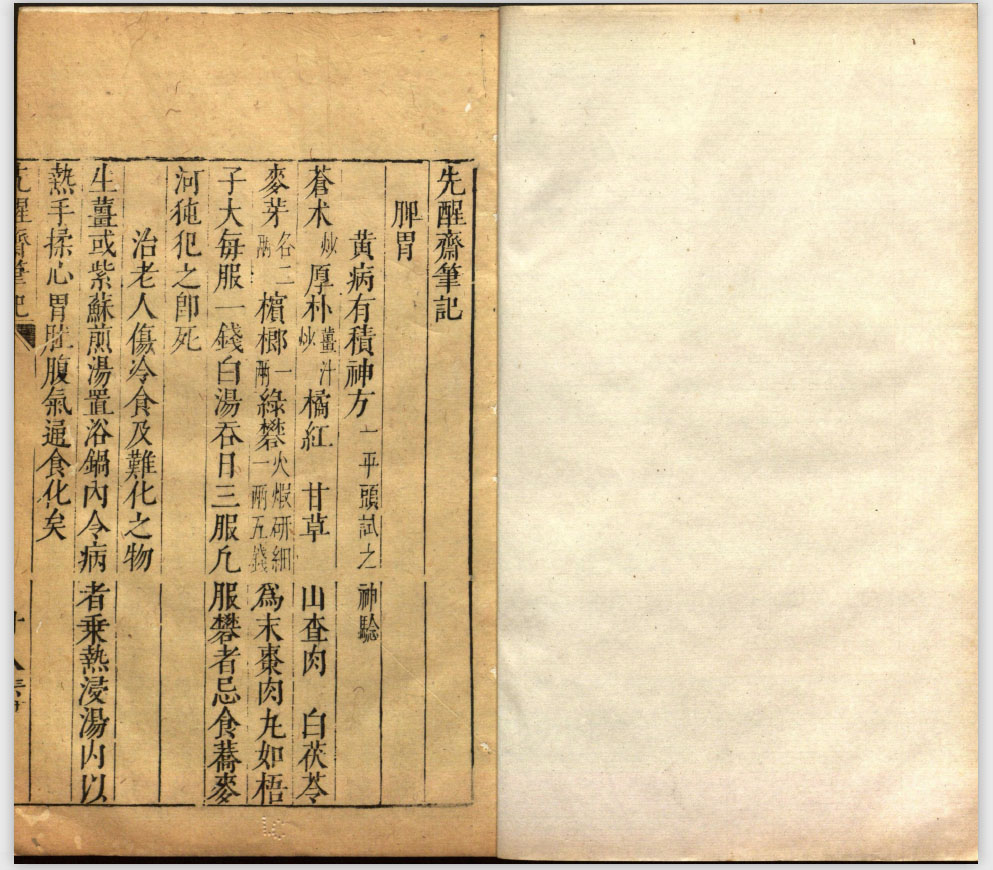 先醒齋筆記
脾胃
黃病有積神方一平頭試之神驗
蒼术炒厚朴薑汁炒橘紅 甘草 山查肉 白茯苓
麥芽各二兩檳榔一兩綠礬火煅研細一兩五錢爲末棗肉丸如梧
子大每服一錢白湯吞日三服凢服礬者忌食蕎麥
河㹠犯之卽死
治老人傷冷食及難化之物
生薑或紫蘇煎湯置浴鍋內令病者乗熱浸湯内以
熱手揉心胃肚腹氣逼食化矣
先醒齋筆記